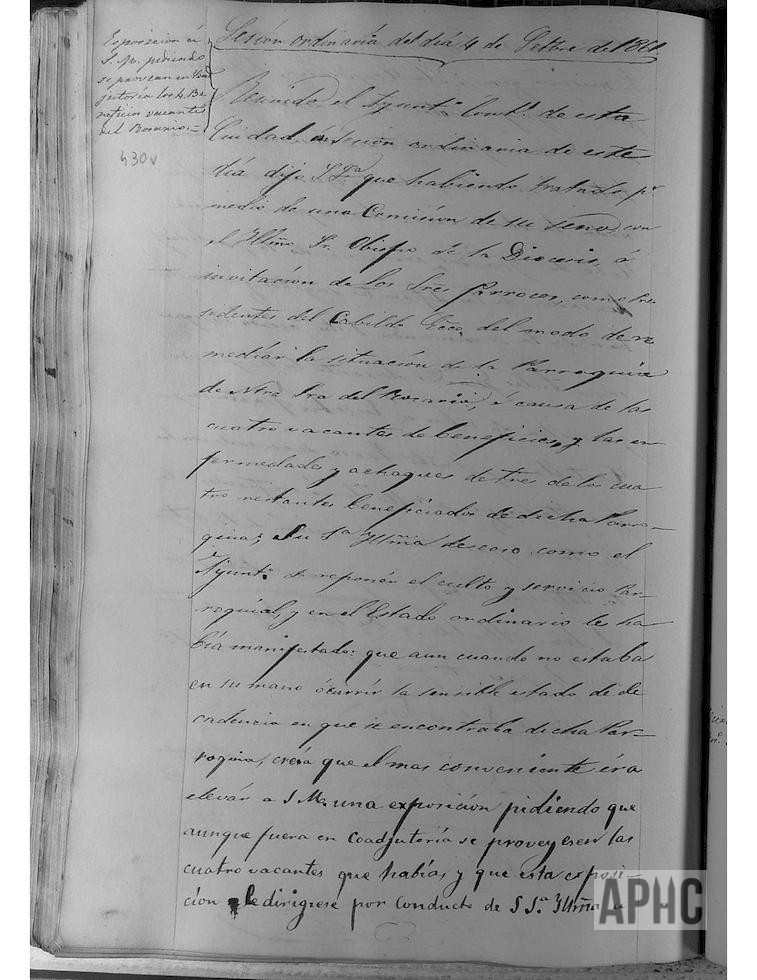 Esposicion á
S. M. pidiendo
se provean en Coad
jutoria los 4 Be
neficios vacantes
del Rosario =
430v
Sesión ordinaria del día 4 de Setbre de 18
Reunido el Ayuntº Constl. de esta
Ciudad en Sesión ordinaria de este
día dijo S Sª que habiendo tratado pr
medio de una Comisión de su seno con
el Illmo Sr. Obispo de la Diocesis, á
invitación de los Sres Parrocos, como Pre
sidentes del Cabildo Ecco. del modo de re
mediar la situación de la Parroquia
de Ntra Sra del Rosario, á causa de las
cuatro vacantes de beneficios, y las en
fermedades y achaques de tres de los cua
tro restantes beneficiados de dicha Parro-
quia; Su Sª Illma deseoso como el
Ayuntº de reponer el culto y servicio Par-
roquial, y en el Estado ordinario les ha
bía manifestado: que aun cuando no estaba
en su mano ocurrir la sensible estado de de
cadencia en que se encontraba dicha Par-
roquia, creía que el mas conveniente éra
elevár a S M. una exposición pidiendo que
aunque fuera en Coadjutoría se proveyesen las
cuatro vacantes que habías y que esta exposi-
ción le dirigiese por conducto de S Sª Illma
APHC